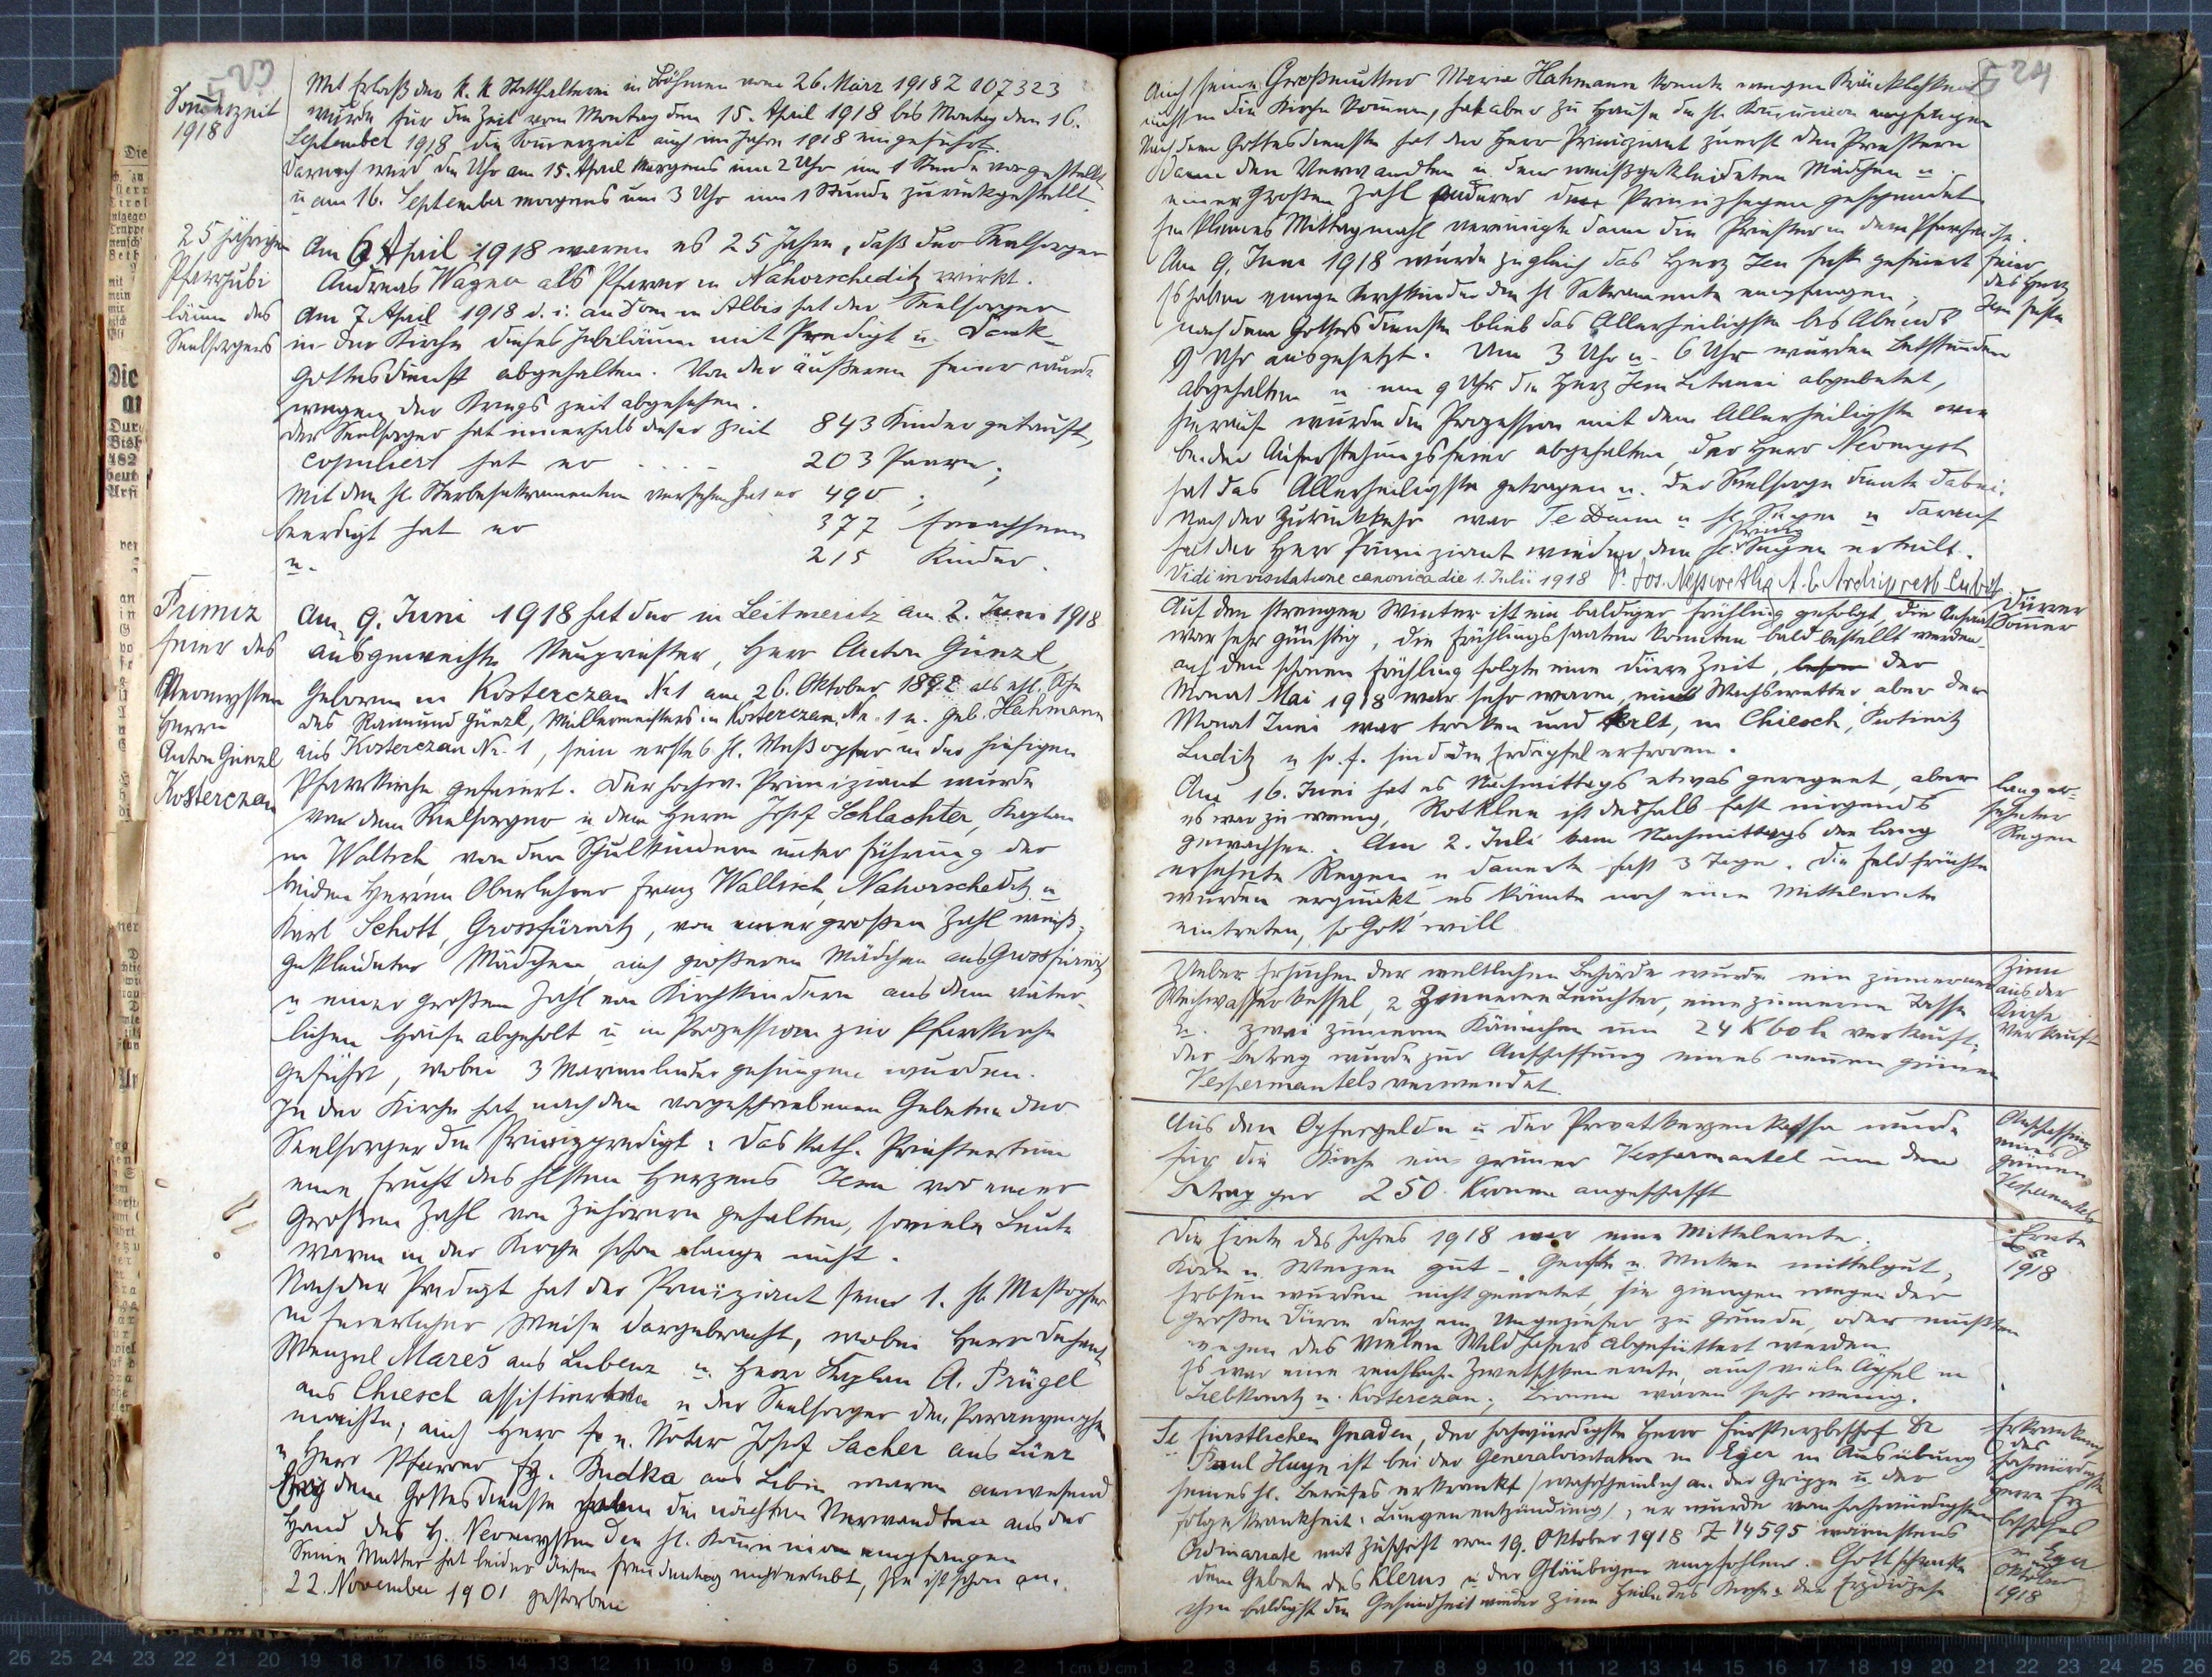 23
Sommerzeit
1918
Mit Erlaß der k. k. Statthalterei in Böhmen vom 26. März 1918 Z 107323
wurde für die Zeit vom Montag den 15. April 1918 bis Montag den 16.
September 1918 die Sommerzeit auch im Jahre 1918 eingeführt.
Darnach wird die Uhr am 15. April Morgens um 2 Uhr um 1 Stunde vorgestellt
u am 16. September morgens um 3 Uhr um 1 Stunde zurückgestellt.
25 jähriges
Pfarrjubi
läum des
Seelsorgers
Am 6 April 1918 waren es 25 Jahre, daß der Seelsorger
Andreas Wagner als Pfarrer in Nahorscheditz wirkt.
Am 7 April 1918 d. i. an Dom in Albis hat der Seelsorger
in der Kirche dieses Jubiläum mit Predigt u. Dank-
gottesdienst abgehalten. Von der äußeren Feier wurde
wegen der Kriegszeit abgesehen.
Der Seelsorger hat innerhalb dieser Zeit 843 Kinder getauft,
copuliert hat er . . . . 203 Paare;
mit den hl. Sterbesakramenten versehen hat er 490;
beerdigt hat er 377 Erwachsene
u. 215 Kinder.
Primiz
feier des
Neomysten
Herrn
Anton Günzl
Kosterczan
Am 9. Juni 1918 hat der in Leitmeritz am 2. Juni 1918
ausgeweihte Neupriester, Herr Anton Günzl,
geboren in Kosterczan № 1 am 26. Oktober als ehl. Sohn
des Raimund Günzl, Müllermeisters in Kosterczan, Nr. 1 u. geb. Hahmann
aus Kosterczan Nr. 1, sein erstes hl. Meßopfer in der hiesigen
Pfarrkirche gefeiert. Der hochw. Primiziant wurde
von dem Seelsorger u dem Herrn Josef Schlachter, Kaplan
in Waltsch von den Schulkindern unter Führung der
beiden Herren Oberlehrer Franz Wallisch, Nahorscheditz u
Karl Schott, Grossfürwitz, von einer großen Zahl weiß-
gekleideter Mädchen, auch größeren Mädchen aus Grossfürwitz
u einer großen Zahl von Kirchkindern aus dem väter-
lichen Hause abgeholt u in Prozession zur Pfarrkirche
geführt, wobei 3 Marienlieder gesungen wurden.
In der Kirche hat nach den vorgeschriebenen Gebeten der
Seelsorger die Primizpredigt: Das kath. Priestertum
eine Frucht des hlsten Herzens Jesu vor einer
großen Zahl von Zuhörern gehalten, soviele Leute
waren in der Kirche schon lange nicht.
Nach der Predigt hat der Primiziant sein 1. hl. Meßopfer
in feierlicher Weise dargebracht, wobei Herr Dechant
Wenzel Mareš aus Lubenz u. Herr Kaplan A. Prügel
aus Chiesch assistierten u der Seelsorger den Paranymphen
machte; auch Herr Josef Sacher aus
u Herr Pfarrer Fz. Budka aus Libin waren anwesend
Bei dem Gottesdienste haben die nächsten Verwandten aus der
Hand des H. Neomysten die hl. Kommunion empfangen
Seine Mutter hat leider diesen Freudentag nicht erlebt, sie ist schon am
22. November 1901 gestorben
24
Auch seine Großmutter Maria Hahmann konnte wegen Kränklichkeit
nicht in die Kirche kommen, hat aber zu Hause die hl. Kommunion empfangen
Nach dem Gottesdienste hat der Herr Primiziant zuerst den Priestern
dann den Verwandten u. den weißgekleideten Mädchen u.
einer großen Zahl anderer den Primizsegen gespendet.
Ein kleines Mittagmahl vereinigte dann die Priester in dem Pfarrhause.
Am 9. Juni 1918 wurde zugleich das Herz Jesu Fest gefeiert
Es haben einige Kirchkinder die hl Sakramente empfangen;
nach dem Gottesdienste blieb das Allerheiligste bis Abends
9 Uhr ausgesetzt. Um 3 Uhr u. 6 Uhr wurden Betstunden
abgehalten u um 9 Uhr die Herz Jesu Litanei abgebetet,
hierauf wurde die Prozession mit dem Allerheiligsten wie
bei der Auferstehungsfeier abgehalten, der Herr Neomyst
hat das Allerheiligste getragen u. der Seelsorger diente dabei.
Nach der Zurückkehr war Te Deum u hl. Segen u darauf
hat der Herr Primiziant wieder den hl. Primiz Segen erteilt.
Feier
des Herz
Jesu Festes
Vidi in visitatione canonica die 1. Julii 1918
Auf den strengen Winter ist ein baldiger Frühling gefolgt, die Anbau
war sehr günstig, die Frühlingssaaten konnten bald bestellt werden.
auf den schönen Frühling folgte eine dürre Zeit, der
Monat Mai 1918 war sehr warm, Wachswetter, aber der
Monat Juni war trocken und kalt, in Chiesch,
Luditz u s. f. sind die Erdäpfel erfroren.
Dürrer
Sommer
Am 16. Juni hat es Nachmittags etwas geregnet, aber
es war zu wenig, Rotklee ist deshalb fast nirgends
gewachsen. Am 2. Juli kam Nachmittags der lang
ersehnte Regen u dauerte fast 3 Tage. Die Feldfrüchte
wurden erquickt, es könnte noch eine Mittelernte
eintreten, so Gott will
lang er-
sehnter
Regen
Ueber Ersuchen der weltlichen Behörde wurde ein zinnerner
Weihwasserkessel, 2 zinnerne Leuchter, eine zinnerne Tasse
u. zwei zinnerne Kännchen um 24 K 60 h verkauft;
der Betrag wurde zur Anschaffung eines neuen grünen
Vespermantels verwendet.
Zinn
aus der
Kirche
verkauft
Aus den Opfergeldern u der Privatkerzenkasse wurde
für die Kirche ein grüner Vespermantel um den
Betrag per 250 Kronen angeschafft
Anschaffung
eines
grünen
Vespermantels
Die Ernte des Jahres 1918 war eine Mittelernte.
Korn u. Weizen gut - Gerste u. Wicken mittelgut,
Erbsen wurden nicht geerntet, sie giengen wegen der
großen Dürre durch ein Ungeziefer zu Grunde, oder mußten
wegen des vielen Wildhafers abgefüttert werden.
Es war eine reichliche Zwetschkenernte, auch viele Äpfel in
Liebkowitz u. Kosterczan; Birnen waren sehr wenig.
Ernte
1918
Se fürstlichen Gnaden, der hochwürdigste Herr Fürsterzbischof Dr
Paul Huyn ist bei der Generalvisitation in Eger in Ausübung
seines hl. Berufes erkrankt (wahrscheinlich an der Grippe u. der
Folgekrankheit: Lungenentzündung), er wurde vom hochwürdigsten
Ordinariate mit Zuschrift vom 19. Oktober 1918 Z 14595 wärmstens
dem Gebete des Klerus u der Gläubigen empfohlen. Gott schenke
ihm baldigst die Gesundheit wieder zum Heile der Kirche u. der Erzdiözese
Erkrankung
des
hochwürdigsten
Herrn Erz
bischofes
in Eger
Oktober
1918